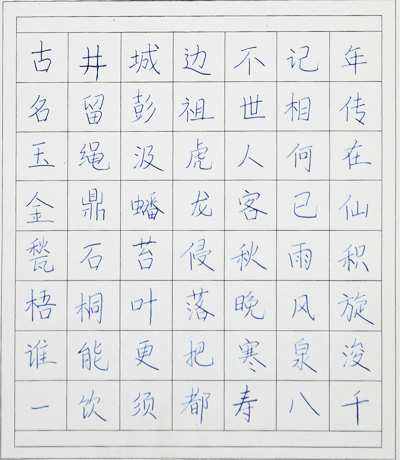 古井城边不记年
名留彭祖世相传
玉绳汲虎人何在
金鼎蟠龙客已仙
甃石苔侵秋雨积
梧桐叶落晚风旋
谁能更把寒泉浚
一饮须都寿八千